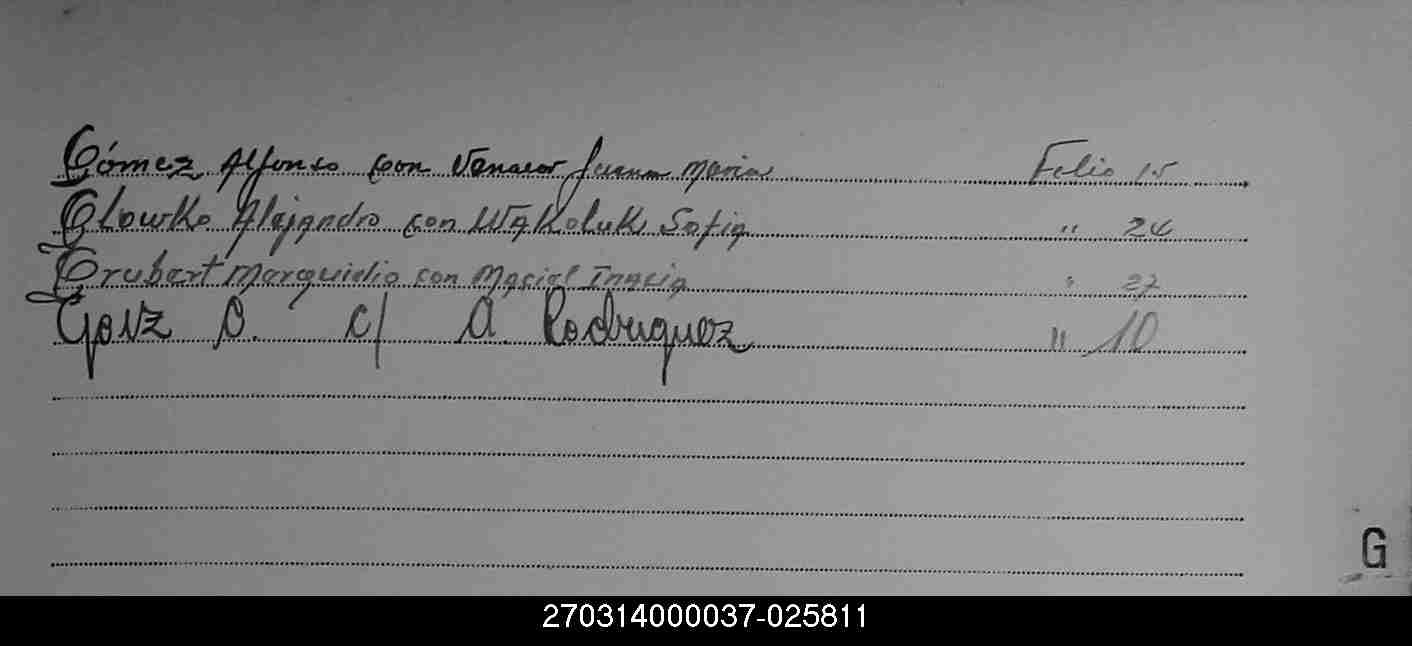 Gómez Alfonso con Juana Maria Folio 15
Glowko Alejandro con Wakoluk Sofia " 24
Grubert con Maciel Inacia " 27
Gonz O. c/ A. Rodriguez " 10
G
270314000037-025811